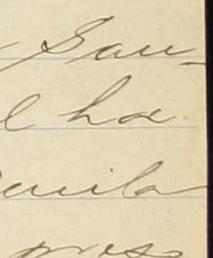 San-
l ha
anila
press